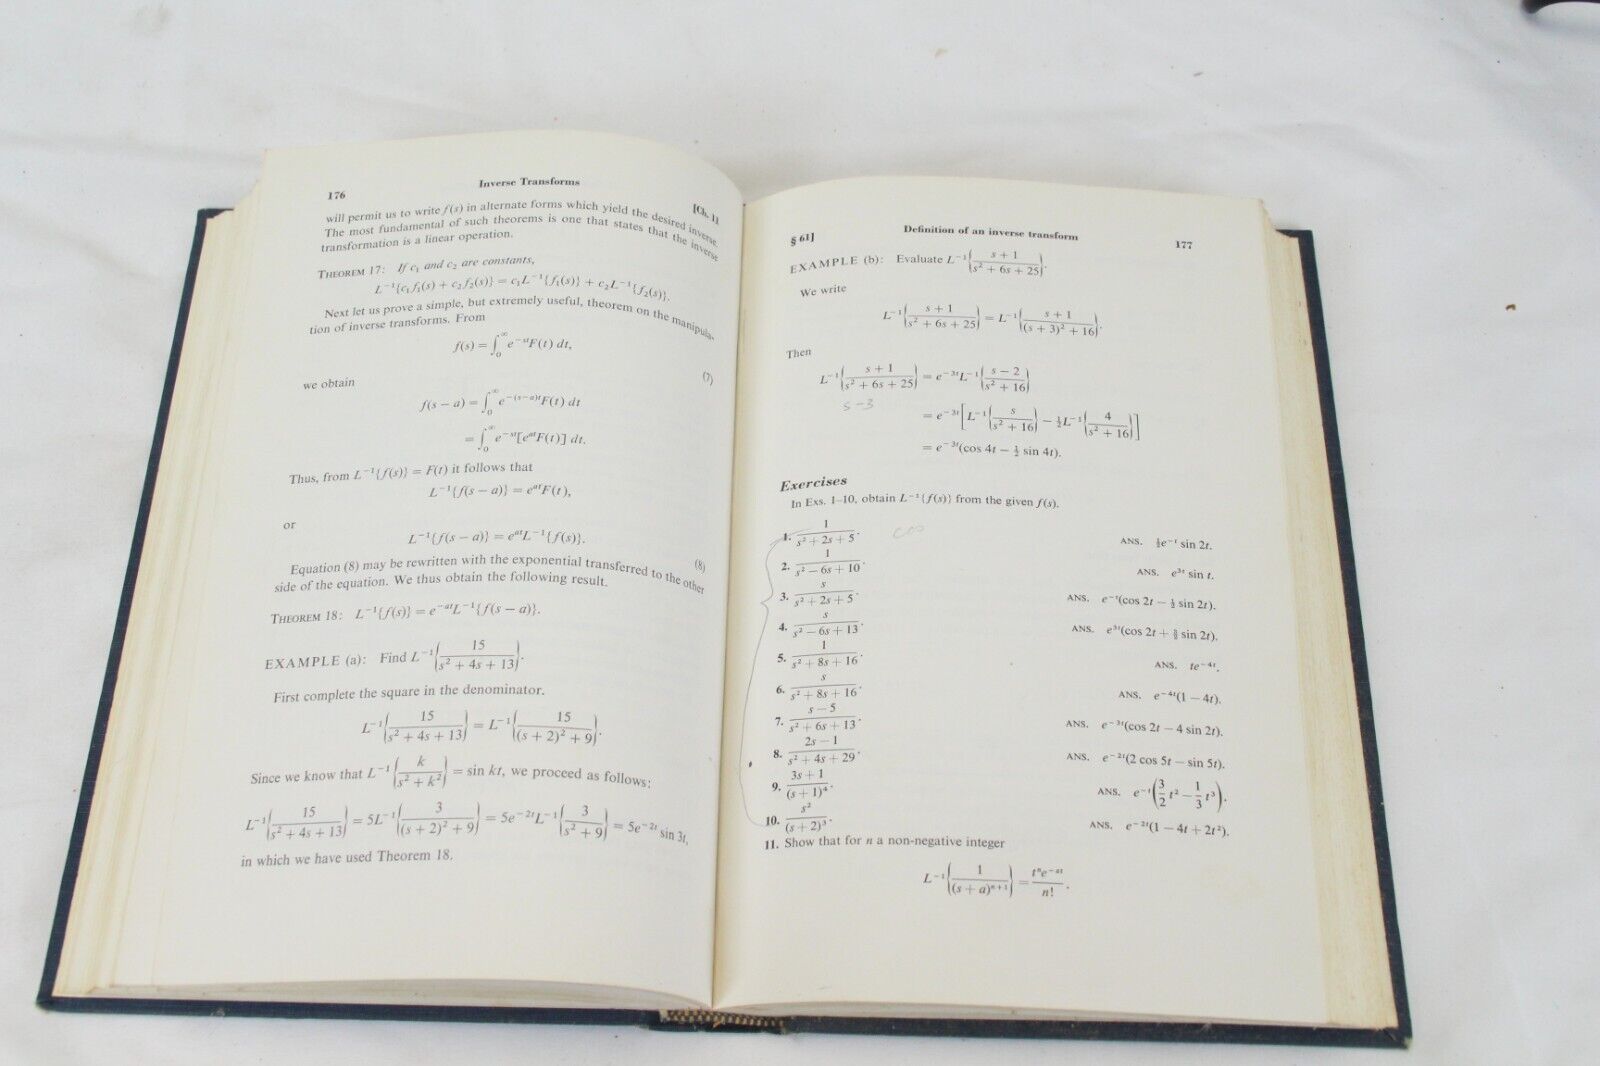 176
Inverse Transforms
[Ch. 11
will permit us to write f(s) in alternate forms which yield the desired inverse.
The most fundamental of such theorems is one that states that the inverse
transformation is a linear operation.
THEOREM 17: If c₁ and c₂ are constants,
L⁻¹{c₁f₁(s) + c₂f₂(s)} = c₁L⁻¹{f₁(s)} + c₂L⁻¹{f₂(s)}.
Next let us prove a simple, but extremely useful, theorem on the manipula-
tion of inverse transforms. From
f(s) = ∫₀^∞ e^(-st)F(t) dt, (7)
we obtain
f(s − a) = ∫₀^∞ e^(-(s-a)t)F(t) dt
= ∫₀^∞ e^(-st)[e^(at)F(t)] dt.
Thus, from L⁻¹{f(s)} = F(t) it follows that
L⁻¹{f(s − a)} = e^(at)F(t),
or
L⁻¹{f(s − a)} = e^(at)L⁻¹{f(s)}. (8)
Equation (8) may be rewritten with the exponential transferred to the other
side of the equation. We thus obtain the following result.
THEOREM 18: L⁻¹{f(s)} = e^(-at)L⁻¹{f(s − a)}.
EXAMPLE (a): Find L⁻¹{15/(s² + 4s + 13)}.
First complete the square in the denominator.
L⁻¹{15/(s² + 4s + 13)} = L⁻¹{15/((s + 2)² + 9)}.
Since we know that L⁻¹{k/(s² + k²)} = sin kt, we proceed as follows:
L⁻¹{15/(s² + 4s + 13)} = 5L⁻¹{3/((s + 2)² + 9)} = 5e^(-2t)L⁻¹{3/(s² + 9)} = 5e^(-2t) sin 3t,
in which we have used Theorem 18.
§ 61]
Definition of an inverse transform
177
EXAMPLE (b): Evaluate L⁻¹{(s + 1)/(s² + 6s + 25)}.
We write
L⁻¹{(s + 1)/(s² + 6s + 25)} = L⁻¹{(s + 1)/((s + 3)² + 16)}.
Then
L⁻¹{(s + 1)/(s² + 6s + 25)} = e^(-3t)L⁻¹{(s − 2)/(s² + 16)}
s-3
= e^(-3t)[L⁻¹{s/(s² + 16)} − ½L⁻¹{4/(s² + 16)}]
= e^(-3t)(cos 4t − ½ sin 4t).
Exercises
In Exs. 1–10, obtain L⁻¹{f(s)} from the given f(s).
1. 1/(s² + 2s + 5). ANS. ½e^(-t) sin 2t.
2. 1/(s² − 6s + 10). ANS. e^(3t) sin t.
3. s/(s² + 2s + 5). ANS. e^(-t)(cos 2t − ½ sin 2t).
4. s/(s² − 6s + 13). ANS. e^(3t)(cos 2t + 3/2 sin 2t).
5. 1/(s² + 8s + 16). ANS. te^(-4t).
6. s/(s² + 8s + 16). ANS. e^(-4t)(1 − 4t).
7. (s − 5)/(s² + 6s + 13). ANS. e^(-3t)(cos 2t − 4 sin 2t).
8. (2s − 1)/(s² + 4s + 29). ANS. e^(-2t)(2 cos 5t − sin 5t).
9. (3s + 1)/(s + 1)⁴. ANS. e^(-t)(3/2 t² − 1/3 t³).
10. s²/(s + 2)³. ANS. e^(-2t)(1 − 4t + 2t²).
11. Show that for n a non-negative integer
L⁻¹{1/(s + a)^(n+1)} = t^n e^(-at)/n!.